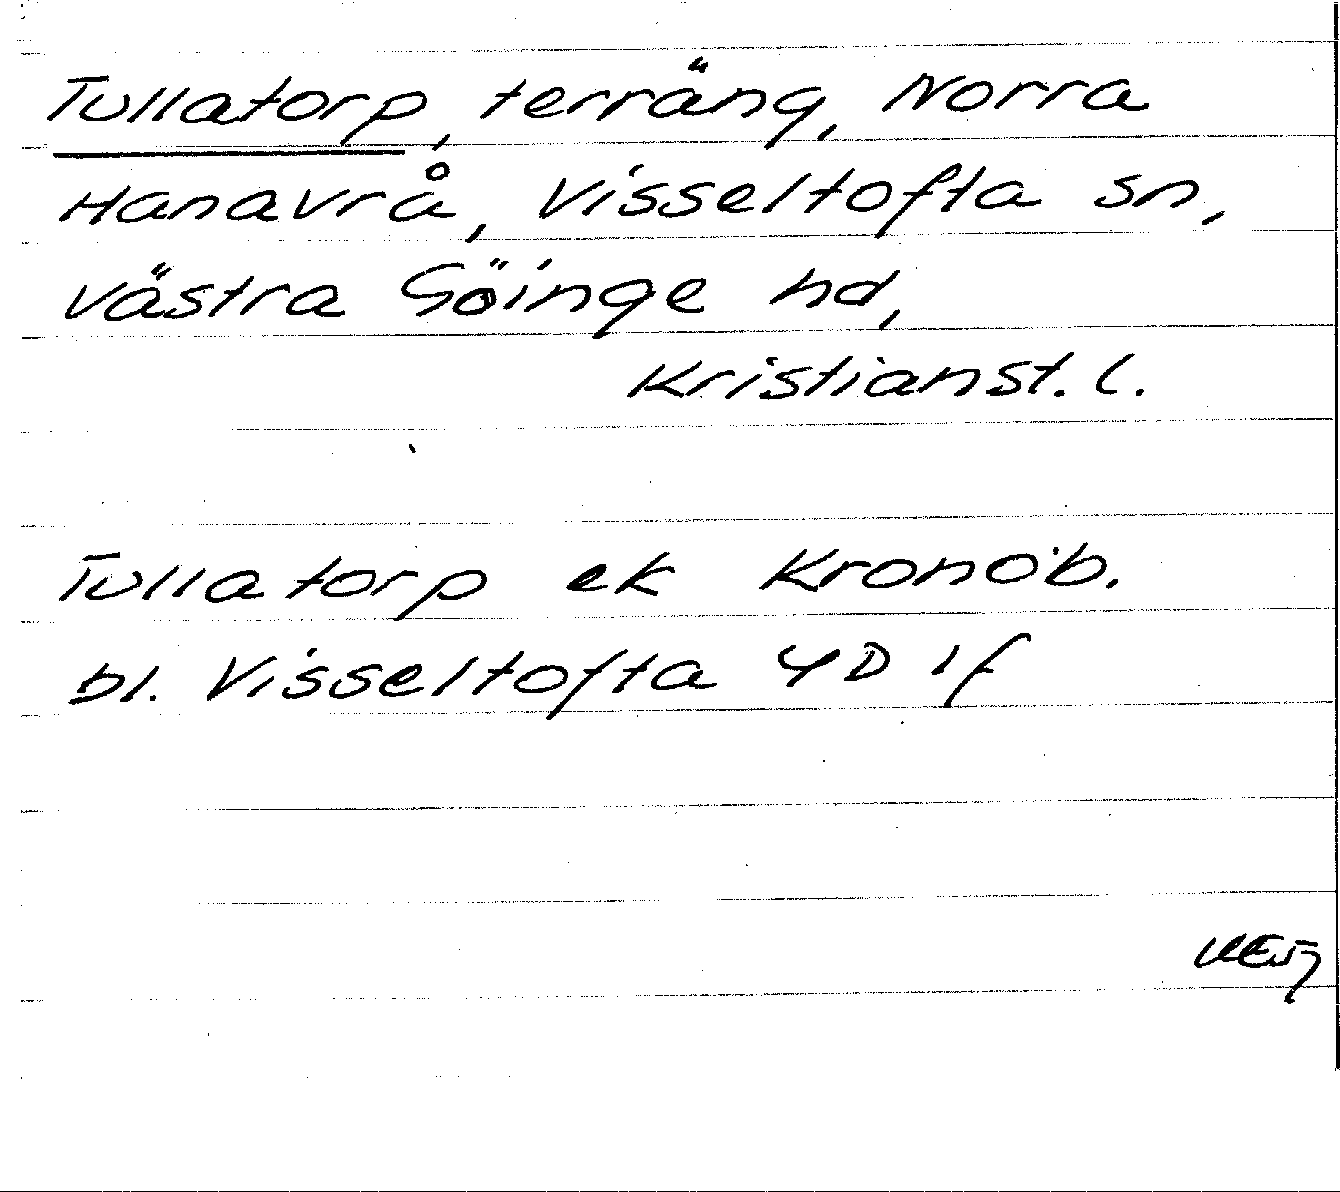 Tullatorp, terräng, Norra
Hanavrå, Visseltofta sn,
Västra Göinge hd,
Kristianst. l.
Tullatorp ek Kronob.
bl. Visseltofta 4D 1f